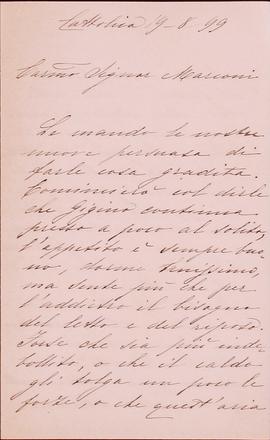 Cattolica 19-8-99
Carmo Signor Marconi
Le mando le nostre
nuove persuasa di
farle cosa gradita.
Comincierò col dirle
che Gigino continua
presso a poco al solito,
l'appetito è sempre buo-
no, dorme benissimo,
ma sente più che per
l'addietro il bisogno
del letto e del riposo.
Forse che sia più inde-
bolito, o che il caldo
gli tolga un poco le
forze, o che quest'aria